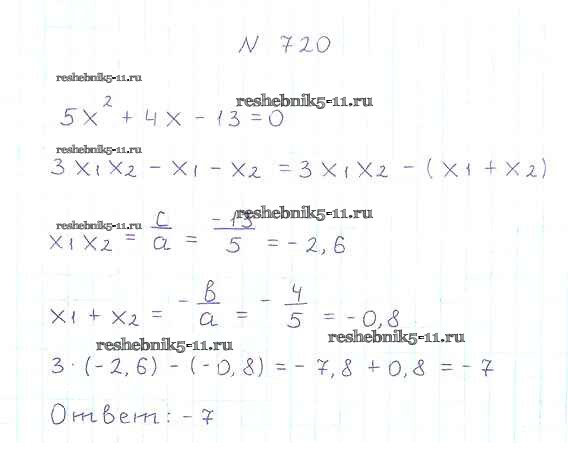 N 720
reshebnik5-11.ru
reshebnik5-11.ru
5x² + 4x - 13 = 0
reshebnik5-11.ru
3x₁x₂ - x₁ - x₂ = 3x₁x₂ - (x₁ + x₂)
reshebnik5-11.ru
reshebnik5-11.ru
x₁x₂ = c/a = -13/5 = -2,6
x₁ + x₂ = -в/a = -4/5 = -0,8
reshebnik5-11.ru
reshebnik5-11.ru
3·(-2,6) - (-0,8) = -7,8 + 0,8 = -7
Ответ: -7